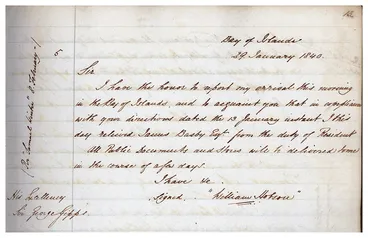 Bay of Islands
29 January 1840.
Sir
I have the honor to report my arrival this morning
in the Bay of Islands, and to acquaint you that in compliance
with your directions dated the 13 January instant I this
day relieved James Busby Esqr from the duty of President
All Public Documents and Stores will be delivered to me
in the course of a few days.
I have &c.
Signed "William Hobson"
His Excellency
Sir George Gipps